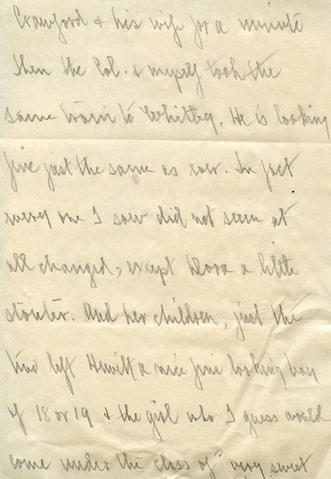 Crawford & his wife for a minute
then the Col. & myself took the
same train to Whitley. He is looking
fine just the same as ever. In fact
every one I saw did not seem at
all changed, except Dora a little
stouter. And her children, just the
two left Hewitt a nice fine looking boy
of 18 or 19 & the girl who I guess would
come under the class of "very sweet